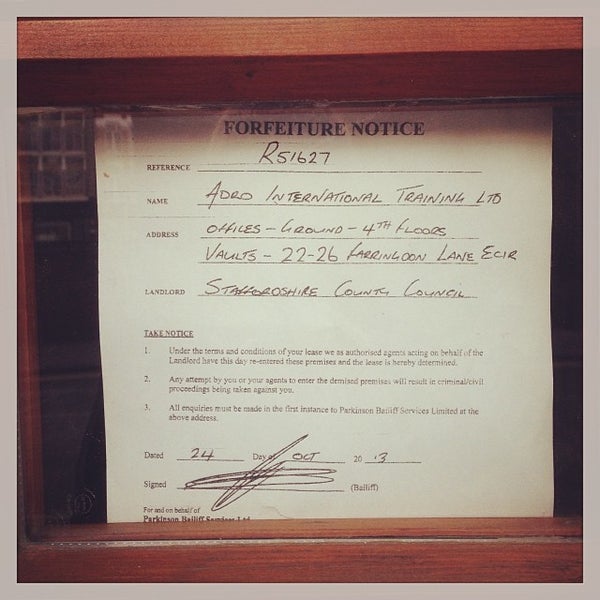 FORFEITURE NOTICE
REFERENCE R51627
NAME ADRO INTERNATIONAL TRAINING LTD
ADDRESS OFFICES - GROUND - 4TH FLOORS
VAULTS - 22-26 FARRINGDON LANE EC1R
LANDLORD STAFFORDSHIRE COUNTY COUNCIL
TAKE NOTICE
1. Under the terms and conditions of your lease we as authorised agents acting on behalf of the
Landlord have this day re-entered these premises and the lease is hereby determined.
2. Any attempt by you or your agents to enter the demised premises will result in criminal/civil
proceedings being taken against you.
3. All enquiries must be made in the first instance to Parkinson Bailiff Services Limited at the
above address.
Dated 24 Day of OCT 20 13
Signed (Bailiff)
For and on behalf of
Parkinson Bailiff Services Ltd